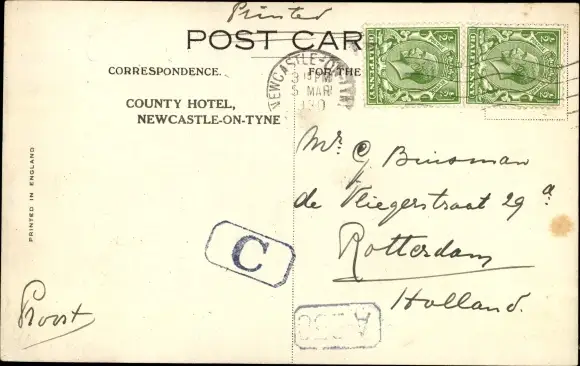 Printed
POST CAR
CORRESPONDENCE.
FOR THE
COUNTY HOTEL,
NEWCASTLE-ON-TYNE
NEWCASTLE-ON-TYN
5 MAR
PRINTED IN ENGLAND
HALFPENNY
HALFPENNY
Mr. G Buisman
de Vliegerstraat 29 a
Rotterdam
Holland.
C
Proost